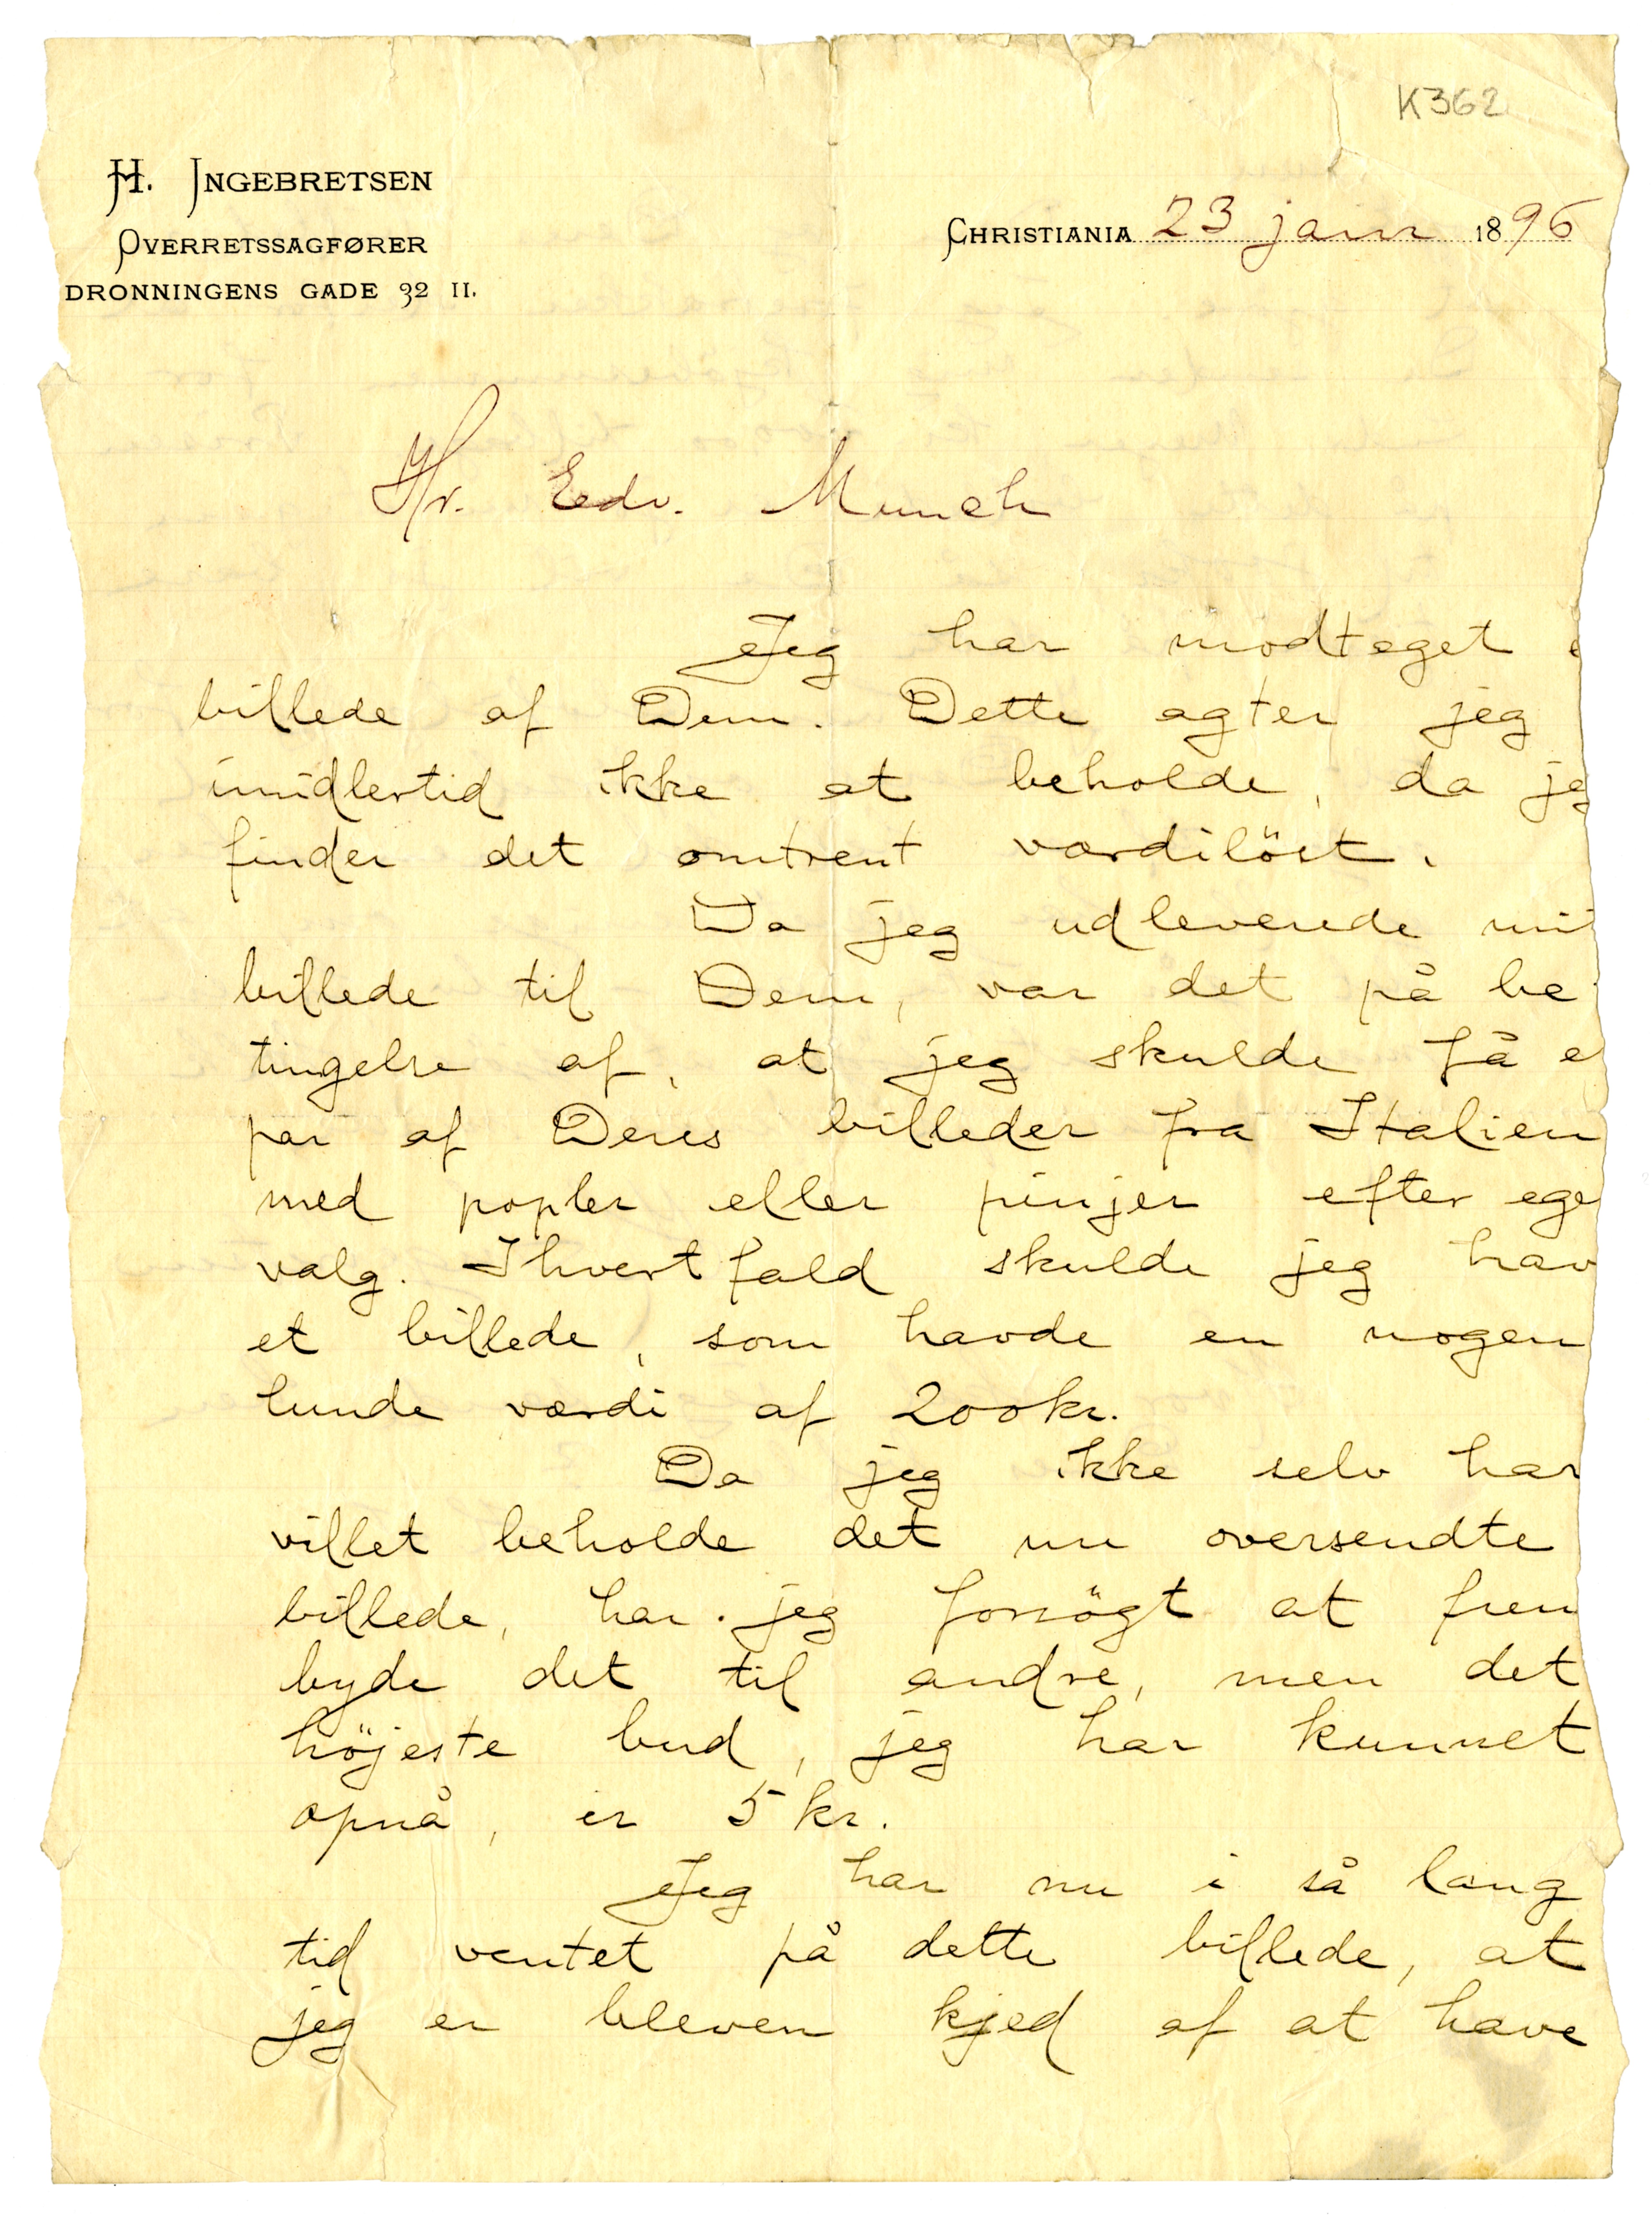 K362
H. INGEBRETSEN
OVERRETSSAGFØRER
DRONNINGENS GADE 32 II.
CHRISTIANIA 23 janr 1896
Hr. Edv. Munch
Jeg har modtaget
billede af Dem. Dette agter jeg
imidlertid ikke at beholde, da jeg
finder det omtrent værdiløst.
Da jeg udleverede mit
billede til Dem, var det på be
tingelse af, at jeg skulde få e
par af Deres billeder fra Italien
med popler eller pinjer efter ege
valg. Ihvertfald skulde jeg hav
et billede, som havde en nogen
lunde værdi af 200kr.
Da jeg ikke selv har
villet beholde det nu oversendte
billede, har jeg forsögt at frem
byde det til andre, men det
höjeste bud, jeg har kunnet
opnå, er 5 kr.
Jeg har nu i så lang
tid ventet på dette billede, at
jeg er bleven kjed af at have